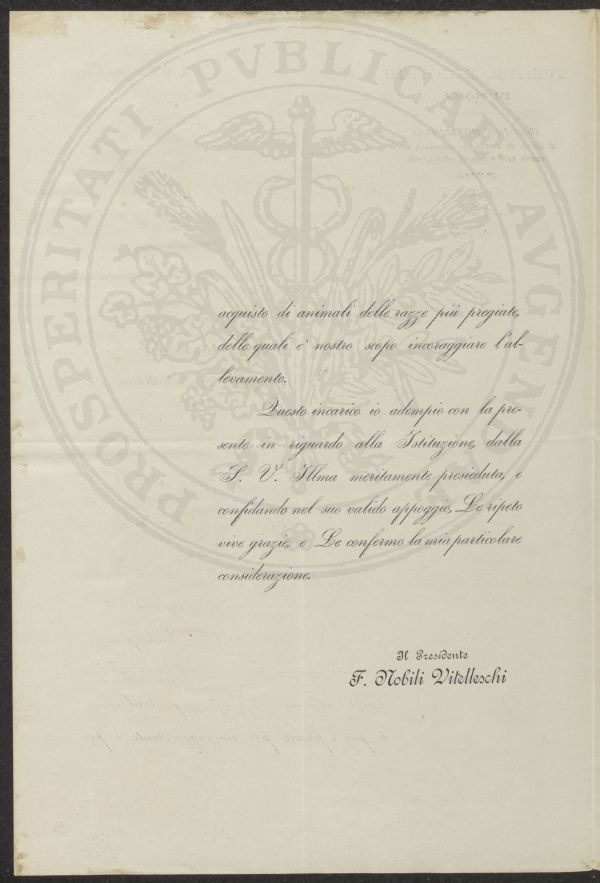 PROSPERITATI PVBLICAE AVGENDAE
acquisto di animali delle razze più pregiate,
delle quali è nostro scopo incoraggiare l'al-
levamento.
Questo incarico io adempio con la pre-
sente in riguardo alla Istituzione, dalla
S. V. Illma meritamente presieduta, e
confidando nel suo valido appoggio, Le ripeto
vive grazie, e Le confermo la mia particolare
considerazione.
Il Presidente
F. Nobili Vitelleschi